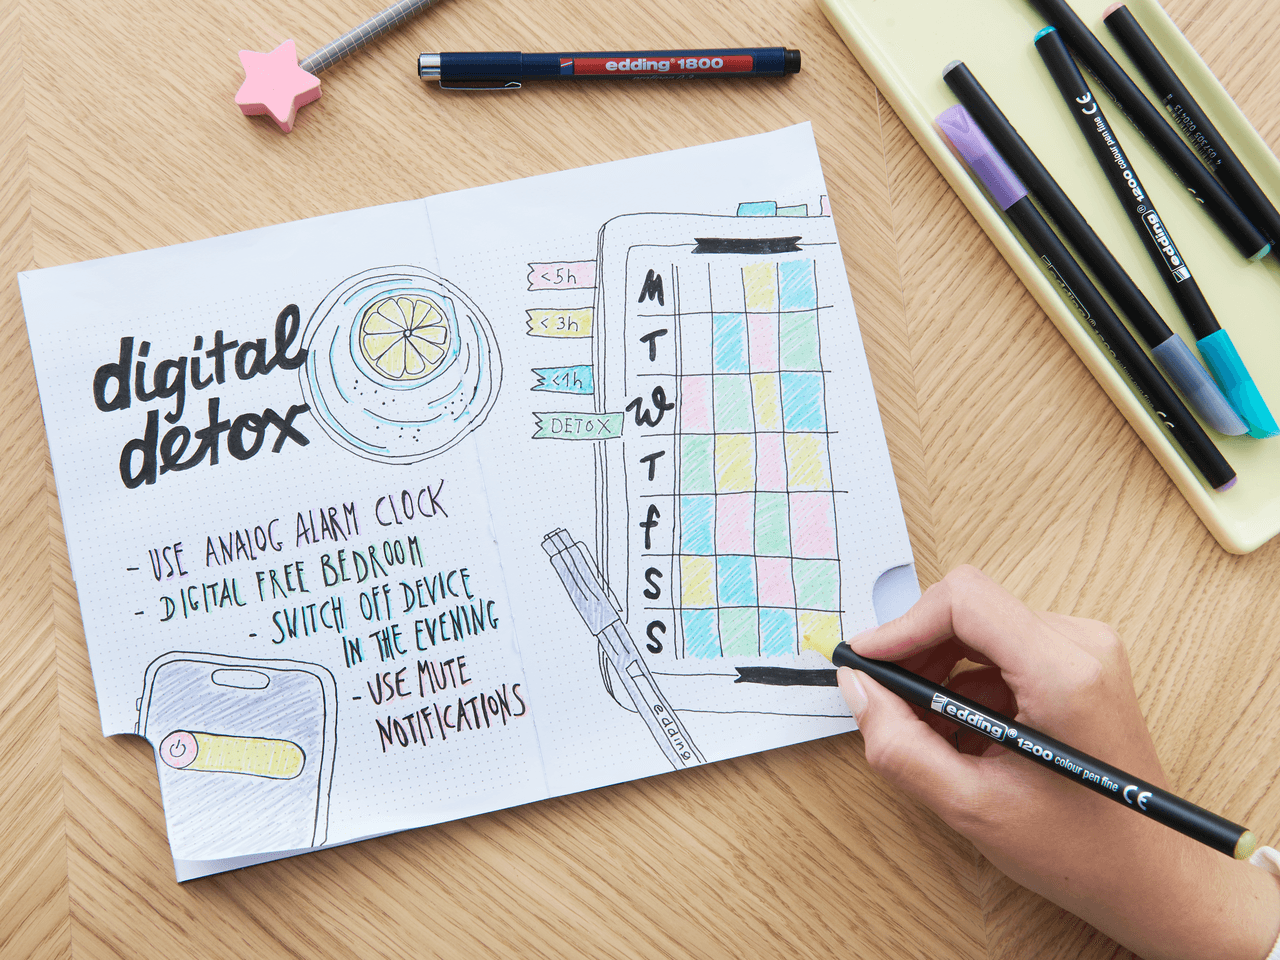 edding® 1800
digital
detox
- USE ANALOG ALARM CLOCK
- DIGITAL FREE BEDROOM
- SWITCH OFF DEVICE
IN THE EVENING
- USE MUTE
NOTIFICATIONS
<5h
<3h
<1h
DETOX
M
T
W
T
f
S
S
edding
edding® 1200 colour pen fine CE
edding® 1200 colour pen fine CE